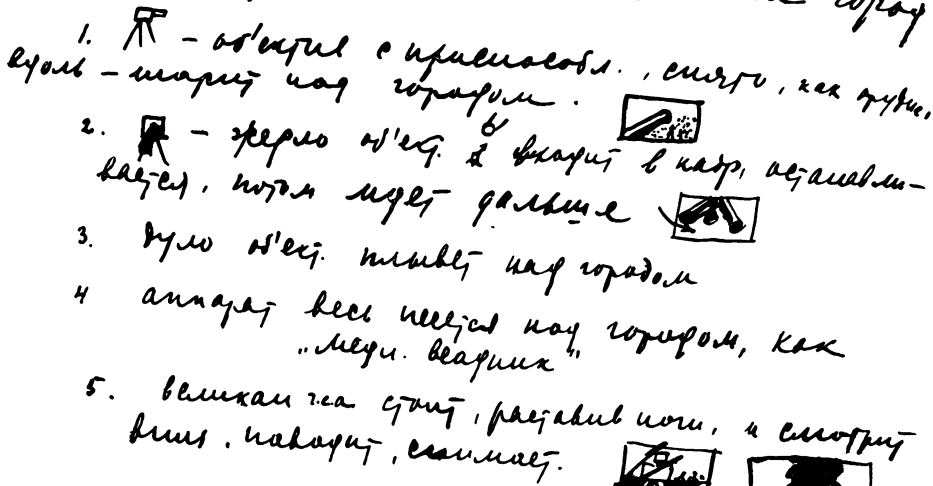 город
1. – об'ектив с приспособл., снято, как орудие,
вдоль – шарит над городом.
2. – жерло об'ект. входит в кадр, останавли-
вается, потом идет дальше
3. дуло об'ект. плывет над городом
4 аппарат весь несется над городом, как
„медн. всадник“
5. великан стоит, расставив ноги, и смотрит
вниз, наводит, снимает.